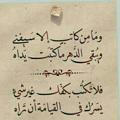 وما من كاتب إلا سيفنى
ويبقي الدهر ما كتبت يداه
فلا تكتب بكفك غير شيء
يسرك في القيامة أن تراه